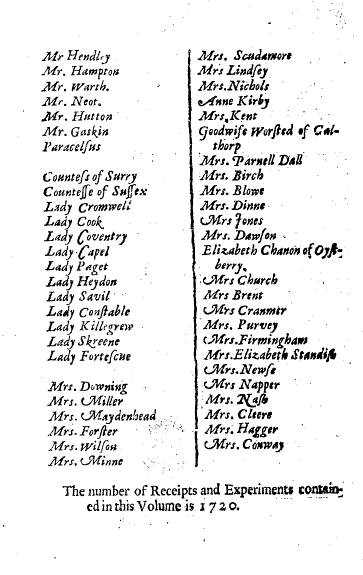 Mr Hendley
Mr. Hampton
Mr. Warth.
Mr. Neot.
Mr. Hutton
Mr. Gaskin
Paracelſus
Counteſs of Surry
Counteſſe of Suſſex
Lady Cromwell
Lady Cook
Lady Coventry
Lady Capel
Lady Paget
Lady Heydon
Lady Savil
Lady Conſtable
Lady Killegrew
Lady Skreene
Lady Forteſcue
Mrs. Downing
Mrs. Miller
Mrs. Maydenhead
Mrs. Forſter
Mrs. Wilſon
Mrs. Minne
Mrs. Scudamore
Mrs Lindſey
Mrs. Nichols
Anne Kirby
Mrs. Kent
Goodwife Worſted of Cal-
thorp
Mrs. Parnell Dall
Mrs. Birch
Mrs. Blowe
Mrs. Dinne
Mrs Jones
Mrs. Dawſon
Elizabeth Chanon of Oyſt-
berry.
Mrs Church
Mrs Brent
Mrs Cranmer
Mrs. Purvey
Mrs. Firmingham
Mrs. Elizabeth Standiſh
Mrs. Newſe
Mrs Napper
Mrs. Naſh
Mrs. Cleere
Mrs. Hagger
Mrs. Conway
The number of Receipts and Experiments contain-
ed in this Volume is 1720.